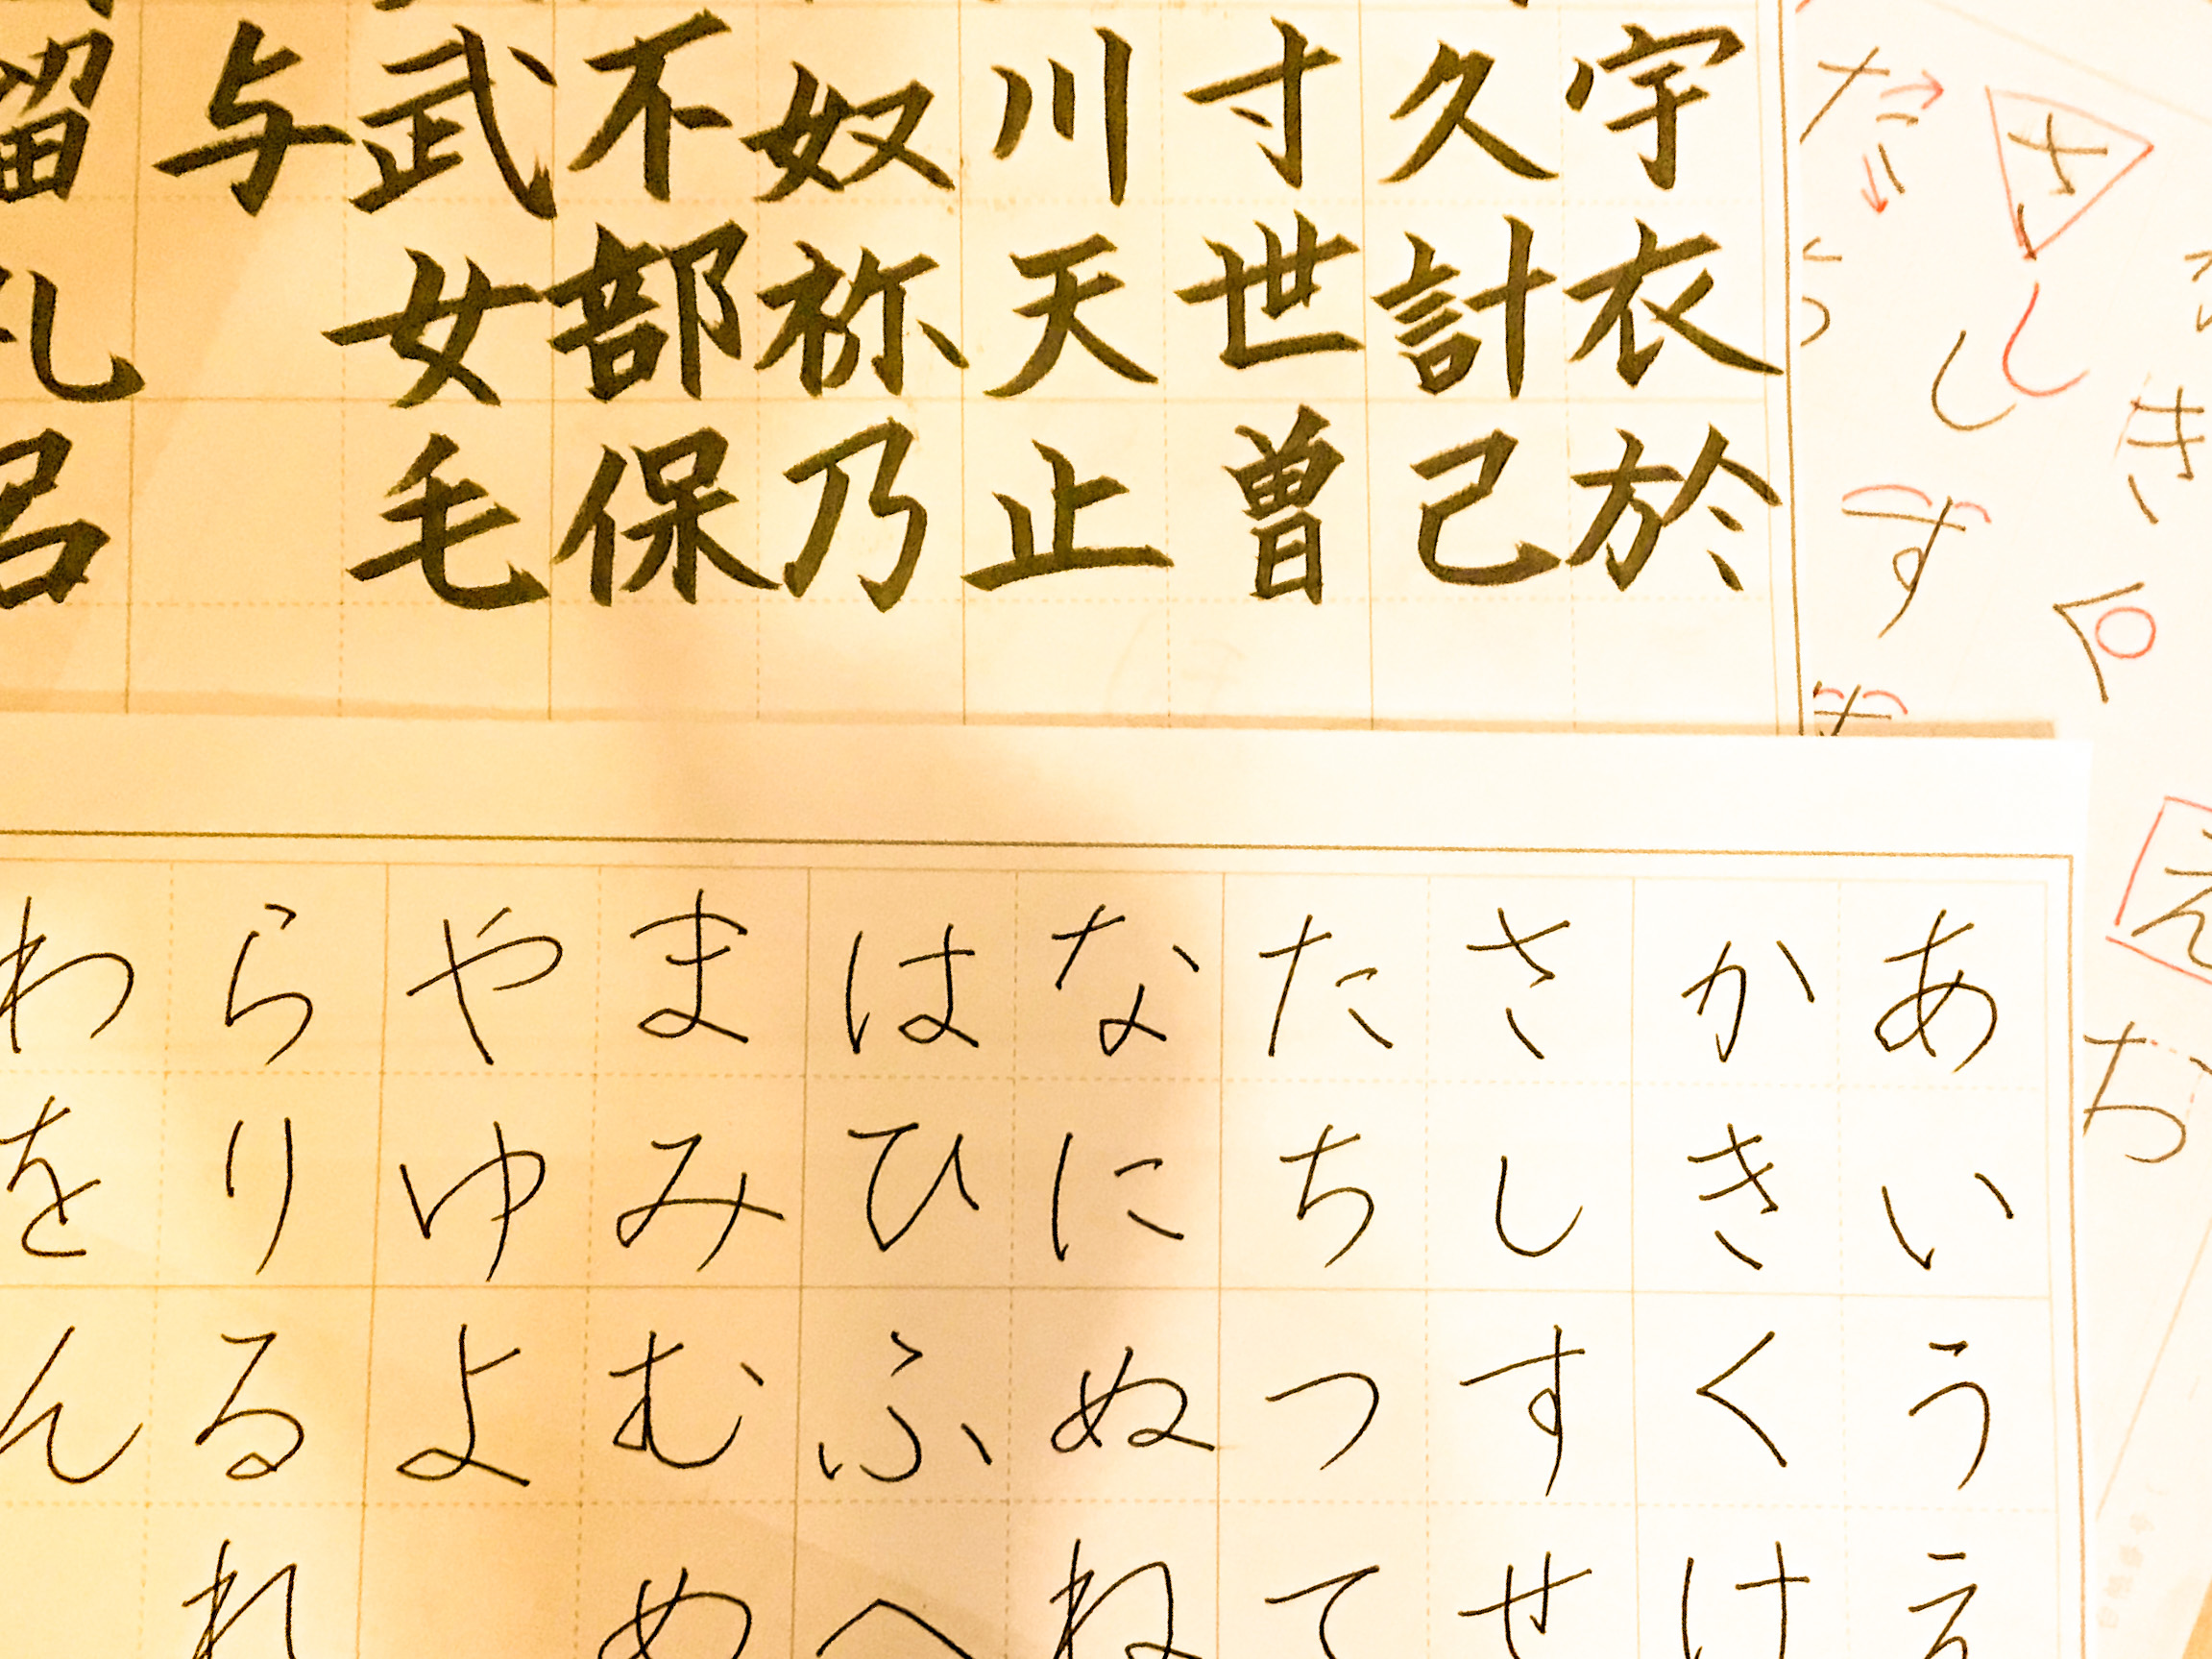 宇衣於
久計己
寸世曽
川天止
奴祢乃
不部保
武女毛
与
留礼呂
あいうえ
かきくけ
さしすせ
たちつて
なにぬね
はひふへ
まみむめ
やゆよ
らりるれ
わをん
き
く
さ
し
し
す
え
お